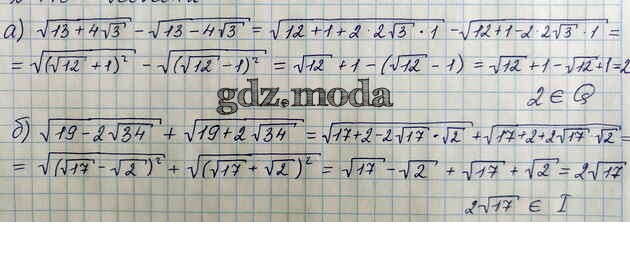 а) √(13+4√3) - √(13-4√3) = √(12+1+2·2√3·1) - √(12+1-2·2√3·1) =
= √((√12+1)²) - √((√12-1)²) = √12 + 1 - (√12 - 1) = √12 + 1 - √12 + 1 = 2
2 ∈ Q
gdz.moda
б) √(19-2√34) + √(19+2√34) = √(17+2-2√17·√2) + √(17+2+2√17 √2) =
= √((√17-√2)²) + √((√17+√2)²) = √17 - √2 + √17 + √2 = 2√17
2√17 ∈ I